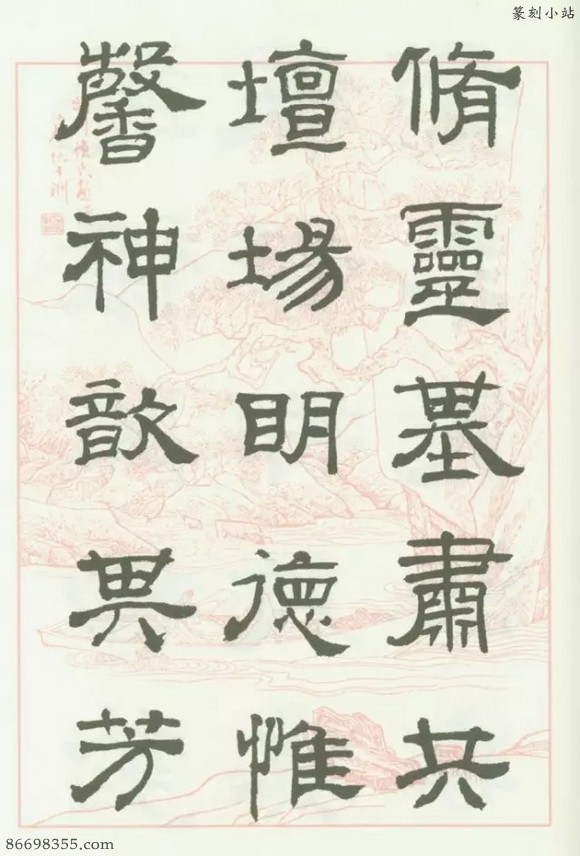 篆刻小站
脩靈基肅共
壇場明德惟
馨神歆其芳
86698355.com